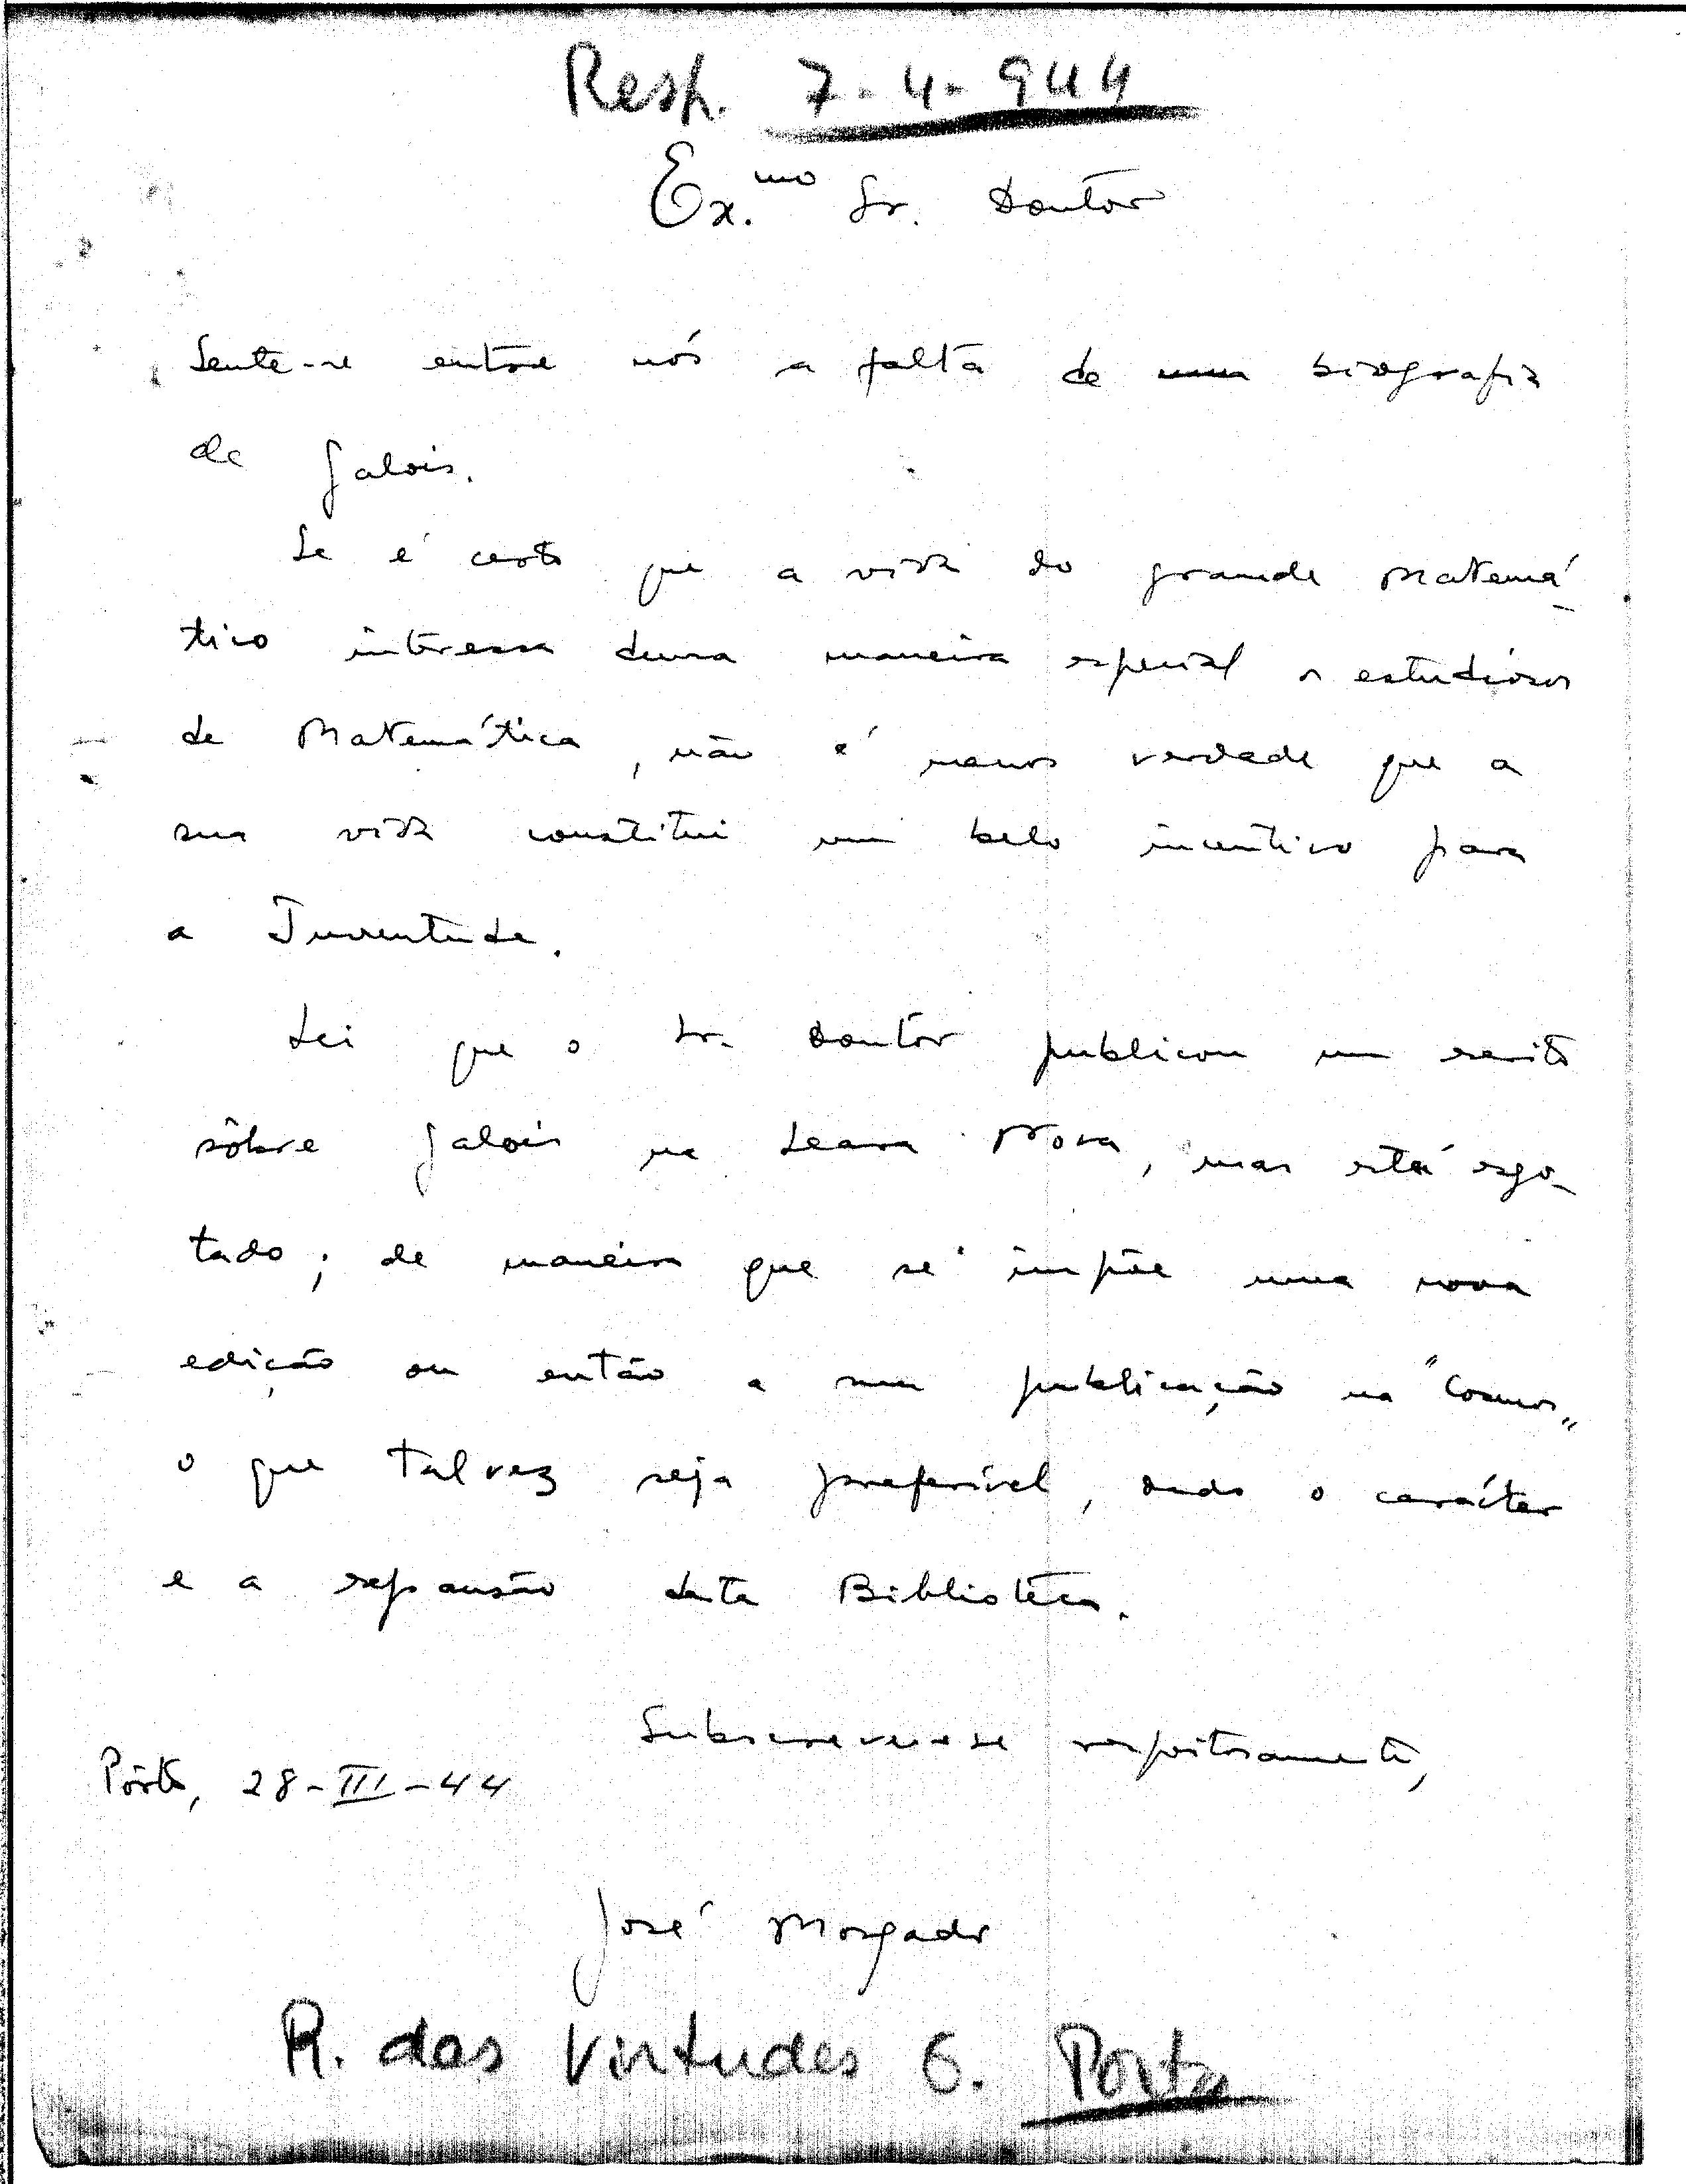 Resp. 7-4-944
Ex.mo Sr. Doutor
Sente-se entre nós a falta de uma biografia
de Galois.
Se é certo que a vida do grande Matemá-
tico interessa duma maneira especial os estudiosos
de Matemática, não é menos verdade que a
sua vida constitui um belo incentivo para
a Juventude.
Sei que o Sr. Doutor publicou um escrito
sôbre Galois na Seara Nova, mas está esgo-
tado; de maneira que se impõe uma nova
edição ou então a sua publicação na "Cosmos"
o que talvez seja preferível, dado o carácter
e a expansão desta Biblioteca.
Subscreve-se respeitosamente,
Pôrto, 28-III-44
José Morgado
R. das Virtudes 6. Porto